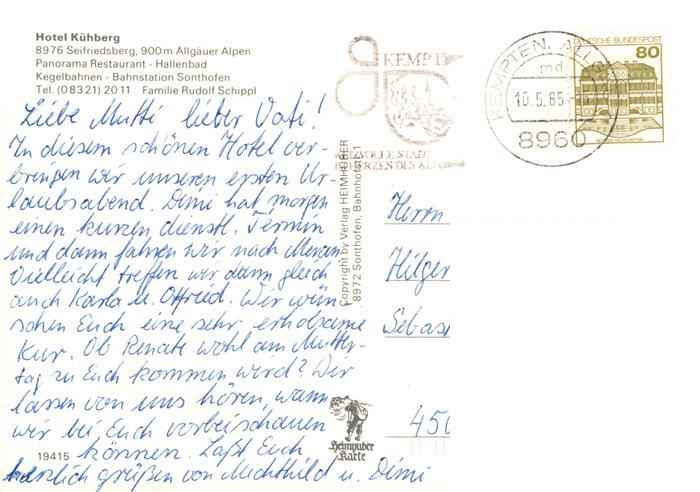 Hotel Kühberg
8976 Seifriedsberg, 900m Allgäuer Alpen
Panorama Restaurant - Hallenbad
Kegelbahnen - Bahnstation Sonthofen
Tel. (08321) 2011 Familie Rudolf Schippl
Liebe Mutti lieber Vati!
In diesem schönen Hotel ver-
bringen wir unseren ersten Ur-
laubsabend. Dimi hat morgen
einen kurzen dienstl. Termin
und dann fahren wir nach Meran
Vielleicht treffen wir dann gleich
auch Karla u. Otfried. Wir wün-
schen Euch eine sehr erholsame
Kur. Ob Renate wohl am Mutter-
tag zu Euch kommen wird? Wir
lassen von uns hören, wann
wir bei Euch vorbeischauen
können. Laßt Euch
herzlich grüßen von Mechthild u. Dimi
19415
Copyright by Verlag HEIMHUBER
8972 Sonthofen, Bahnhofstr. 1
Heimhuber
Karte
KEMPT
VOLLE STADT
HERZEN DES AL
KEMPTEN, ALLG
md
10.5.85
8960
DEUTSCHE BUNDESPOST
80
Herrn
Hilger
Sebas
450